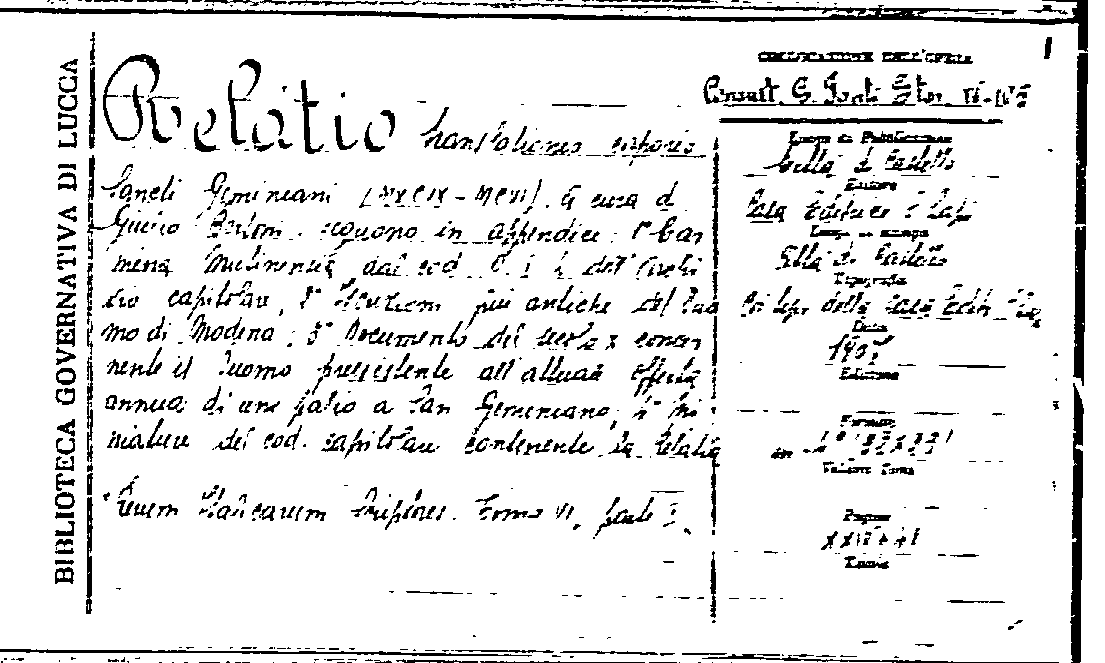 BIBLIOTECA GOVERNATIVA DI LUCCA
Relatio translationis corporis
Sancti Geminiani (MXCIX-MCVI). A cura di
Giulio Bertoni. seguono in appendice: 1° Car
mina Mutinensia dal cod. O. I. 4 dell'Archi
vio capitolare, 2° Iscrizioni più antiche del Duo
mo di Modena; 3° Documento del secolo X concer
nente il Duomo preesistente all'attuale Offerta
annua di un palio a San Geminiano; 4° Mi
niature del cod. capitolare contenente la Relatio
Rerum Italicarum Scriptores. Tomo VI, parte I.
COLLOCAZIONE DELL'OPERA
Consult. G. Fonti Stor.
Luogo di Pubblicazione
Città di Castello
Editore
Casa Editrice S. Lapi
Luogo di stampa
Città di Castello
Tipografia
Coi tipi della Casa Editr.
Data
1907
Edizione
Formato
in
Volume Tomo
Pagine
Tavole